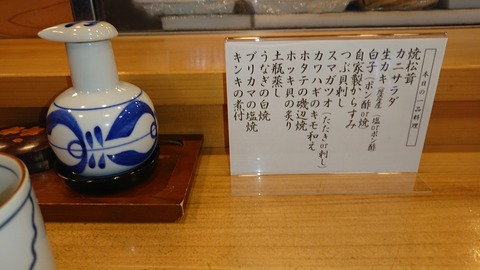 本日の一品料理
焼松茸
カニサラダ
生カキ(塩orポン酢)
白子(ポン酢or焼)
自家製からすみ
つぶ貝刺し
スマガツオ(たたきor刺し)
カワハギのキモ和え
ホタテの磯辺焼
ホッキ貝の炙り
土瓶蒸し
うなぎの白焼
ブリカマの塩焼
キンキの煮付